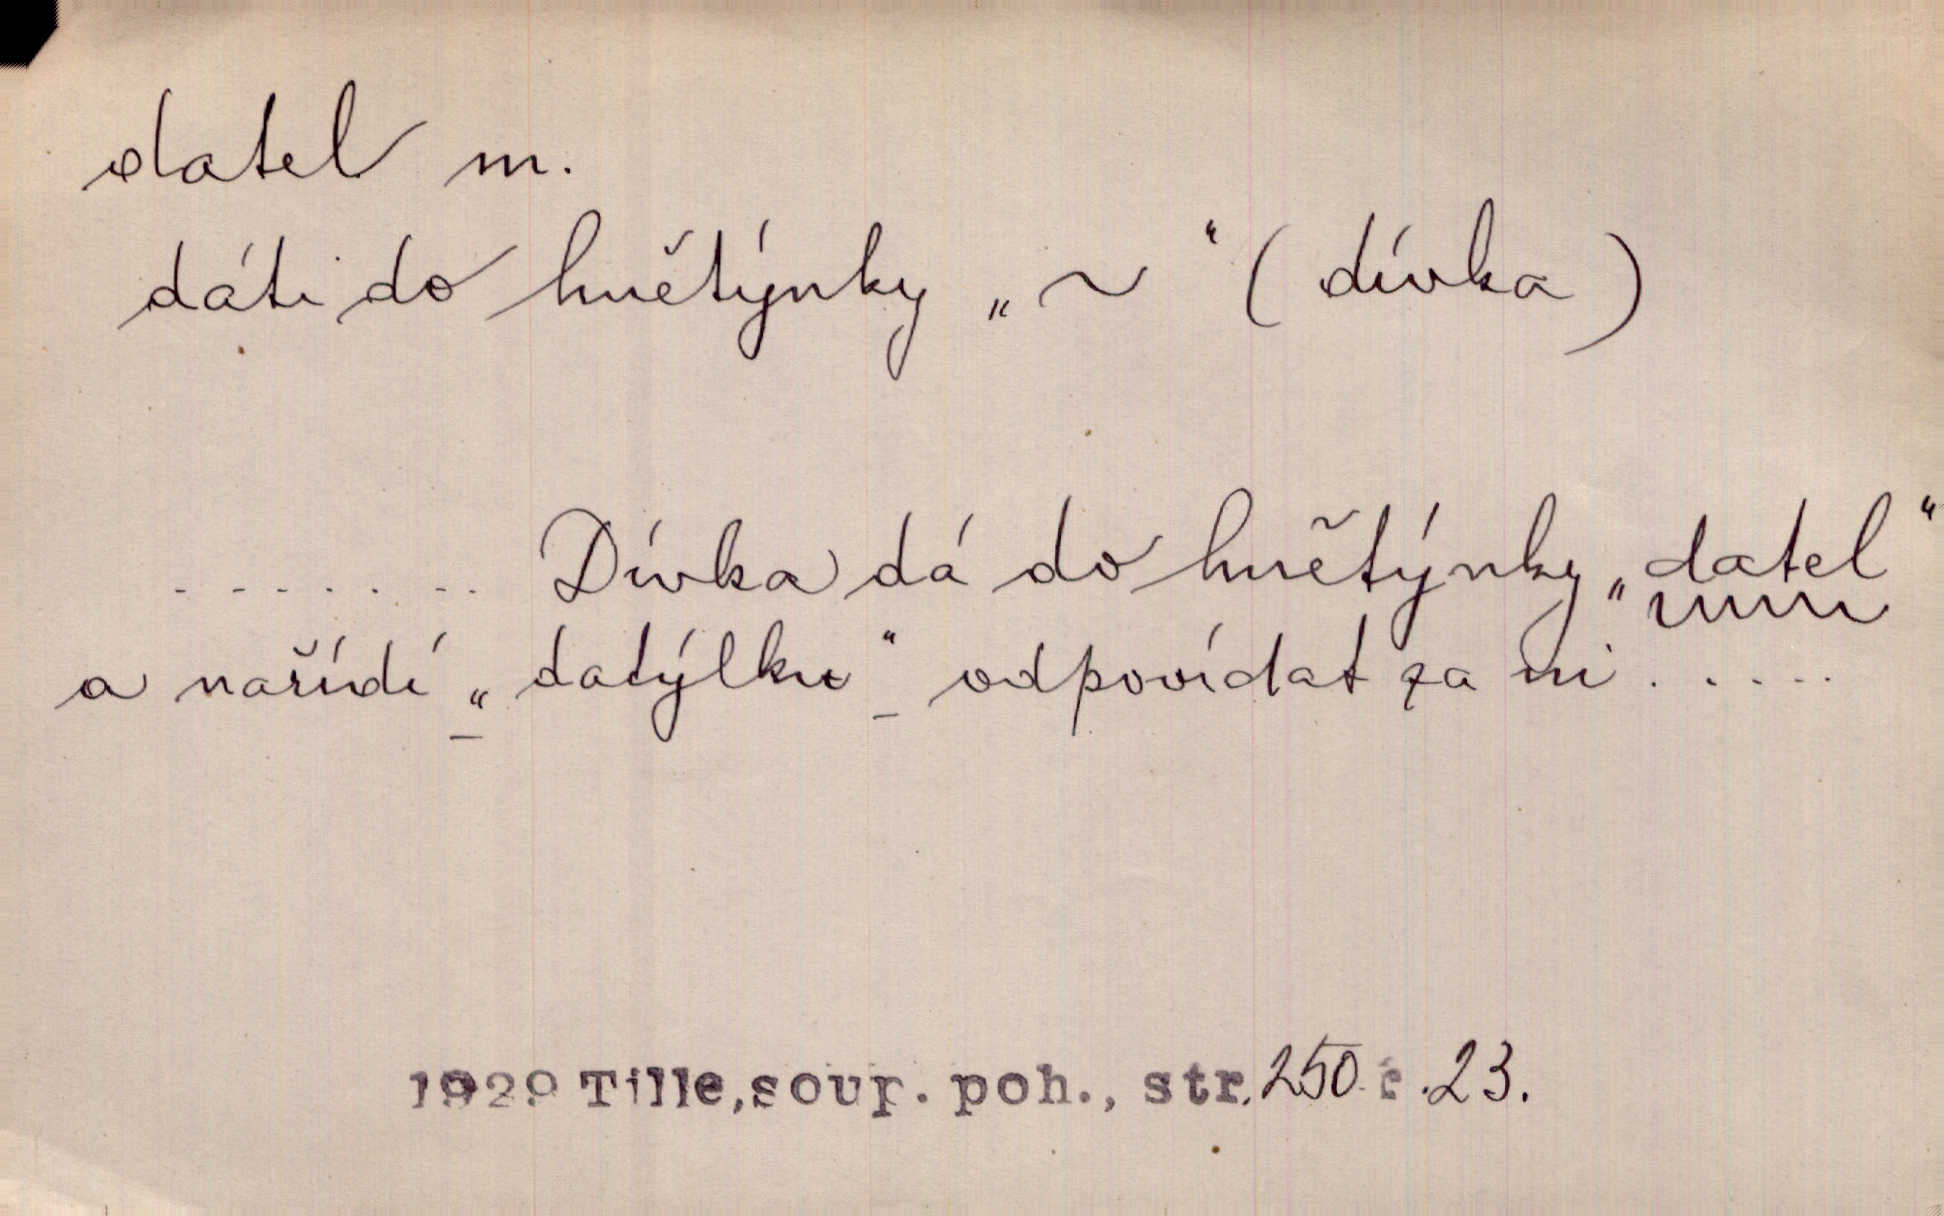 datel m.
dáti do hnětýnky „ ~ “ ( dívka )
........ Dívka dá do hnětýnky „datel“
a naříd́í „datýlku“ odpovídat za ni .....
1929 Tille, soup. poh., str. 250 č. 23.